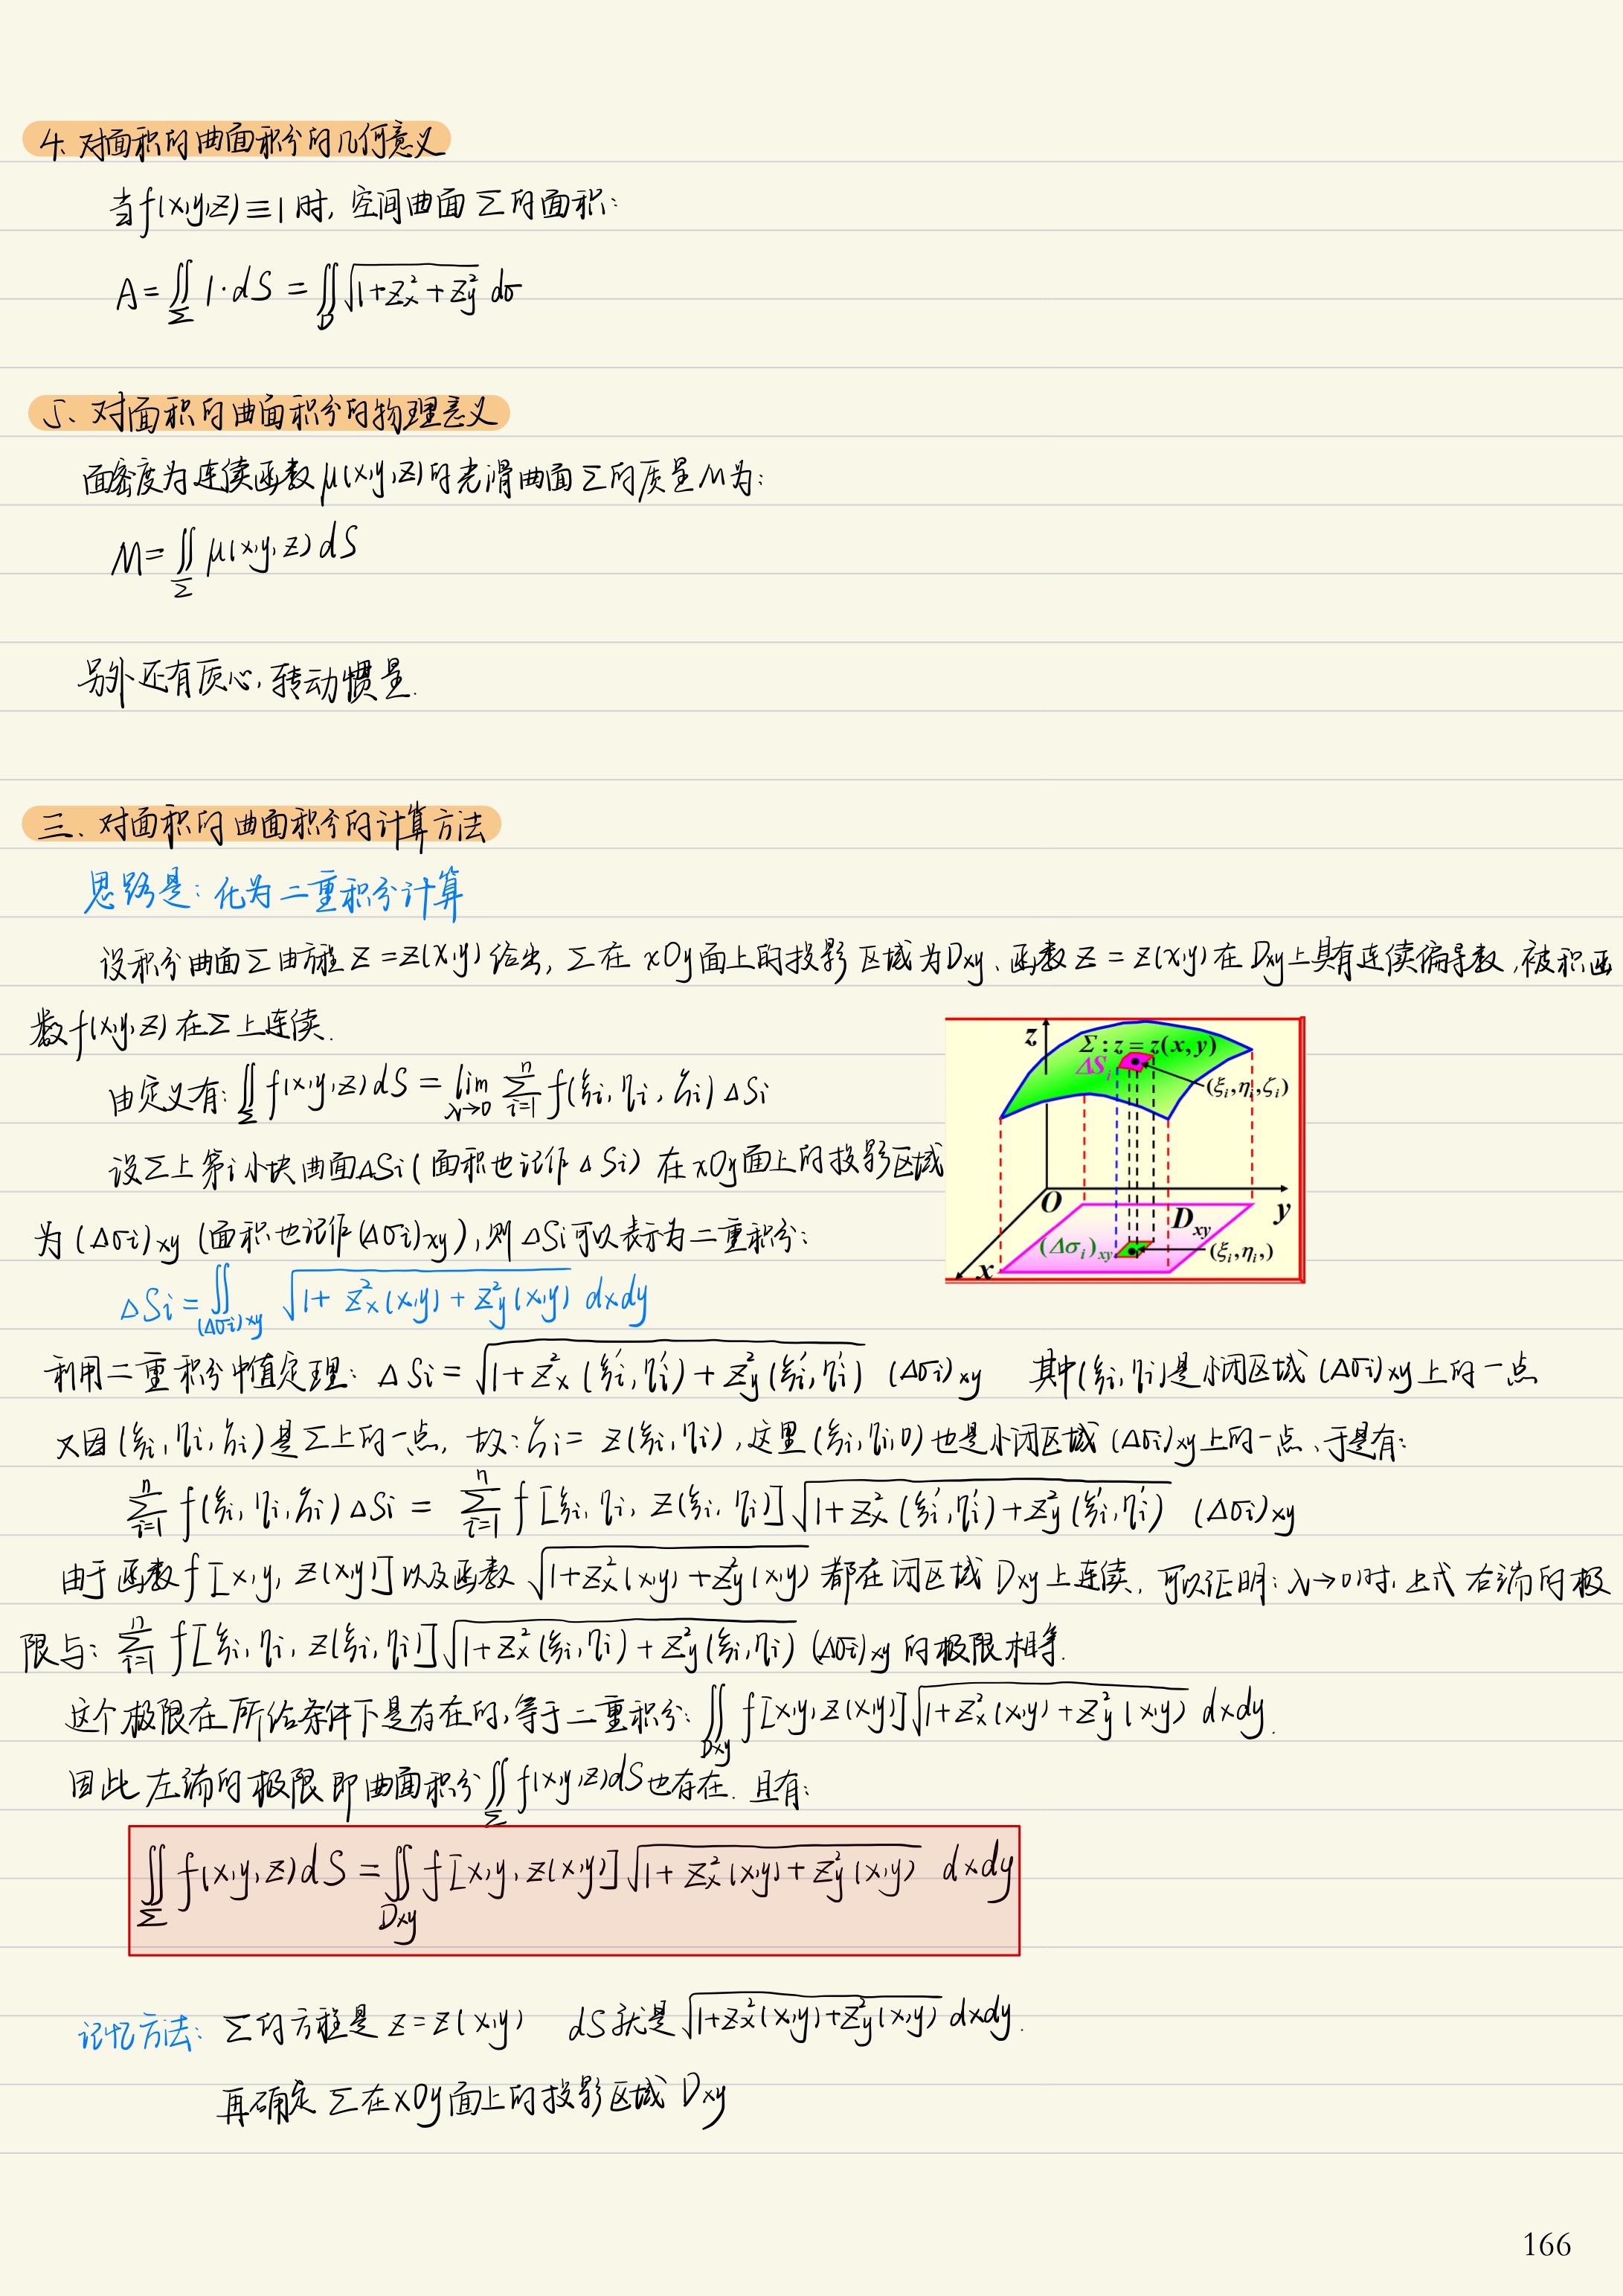 4. 对面积的曲面积分的几何意义
当f(x,y,z)≡1时, 空间曲面Σ的面积:
A=∬_Σ 1·dS = ∬_D √(1+z_x²+z_y²) dσ
5、对面积的曲面积分的物理意义
面密度为连续函数μ(x,y,z)的光滑曲面Σ的质量M为:
M=∬_Σ μ(x,y,z)dS
另外还有质心, 转动惯量.
三、对面积的曲面积分的计算方法
思路是: 化为二重积分计算
设积分曲面Σ由方程z=z(x,y)给出, Σ在xOy面上的投影区域为Dxy、函数z=z(x,y)在Dxy上具有连续偏导数, 被积函
数f(x,y,z)在Σ上连续.
由定义有: ∬_Σ f(x,y,z)dS = lim_{λ→0} Σ_{i=1}^{n} f(ξi, ηi, ζi)ΔSi
设Σ上第i小块曲面ΔSi(面积也记作ΔSi)在xOy面上的投影区域
为(Δσi)xy (面积也记作(Δσi)xy), 则ΔSi可以表示为二重积分:
z
Σ:z=z(x,y)
ΔS_i
(ξ_i,η_i,ζ_i)
O
y
D_xy
(Δσ_i)_xy
(ξ_i,η_i,)
x
ΔSi=∬_{(Δσi)xy} √(1+z_x²(x,y)+z_y²(x,y)) dxdy
利用二重积分中值定理: ΔSi=√(1+z_x²(ξi',ηi')+z_y²(ξi',ηi')) (Δσi)xy 其中(ξi',ηi')是小闭区域(Δσi)xy上的一点
又因(ξi,ηi,ζi)是Σ上的一点, 故: ζi=z(ξi,ηi), 这里(ξi,ηi,0)也是小闭区域(Δσi)xy上的一点、于是有:
Σ_{i=1}^{n} f(ξi,ηi,ζi)ΔSi = Σ_{i=1}^{n} f[ξi, ηi, z(ξi,ηi)]√(1+z_x²(ξi',ηi')+z_y²(ξi',ηi')) (Δσi)xy
由于函数f[x,y,z(x,y)]以及函数√(1+z_x²(x,y)+z_y²(x,y))都在闭区域Dxy上连续, 可以证明: λ→0时, 上式右端的极
限与: Σ_{i=1}^{n} f[ξi,ηi,z(ξi,ηi)]√(1+z_x²(ξi,ηi)+z_y²(ξi,ηi)) (Δσi)xy的极限相等.
这个极限在所给条件下是存在的, 等于二重积分: ∬_{Dxy} f[x,y,z(x,y)]√(1+z_x²(x,y)+z_y²(x,y)) dxdy.
因此左端的极限即曲面积分∬_Σ f(x,y,z)dS也存在. 且有:
∬_Σ f(x,y,z)dS=∬_{Dxy} f[x,y,z(x,y)]√(1+z_x²(x,y)+z_y²(x,y)) dxdy
记忆方法: Σ的方程是z=z(x,y) dS就是√(1+z_x²(x,y)+z_y²(x,y)) dxdy.
再确定Σ在xOy面上的投影区域Dxy
166